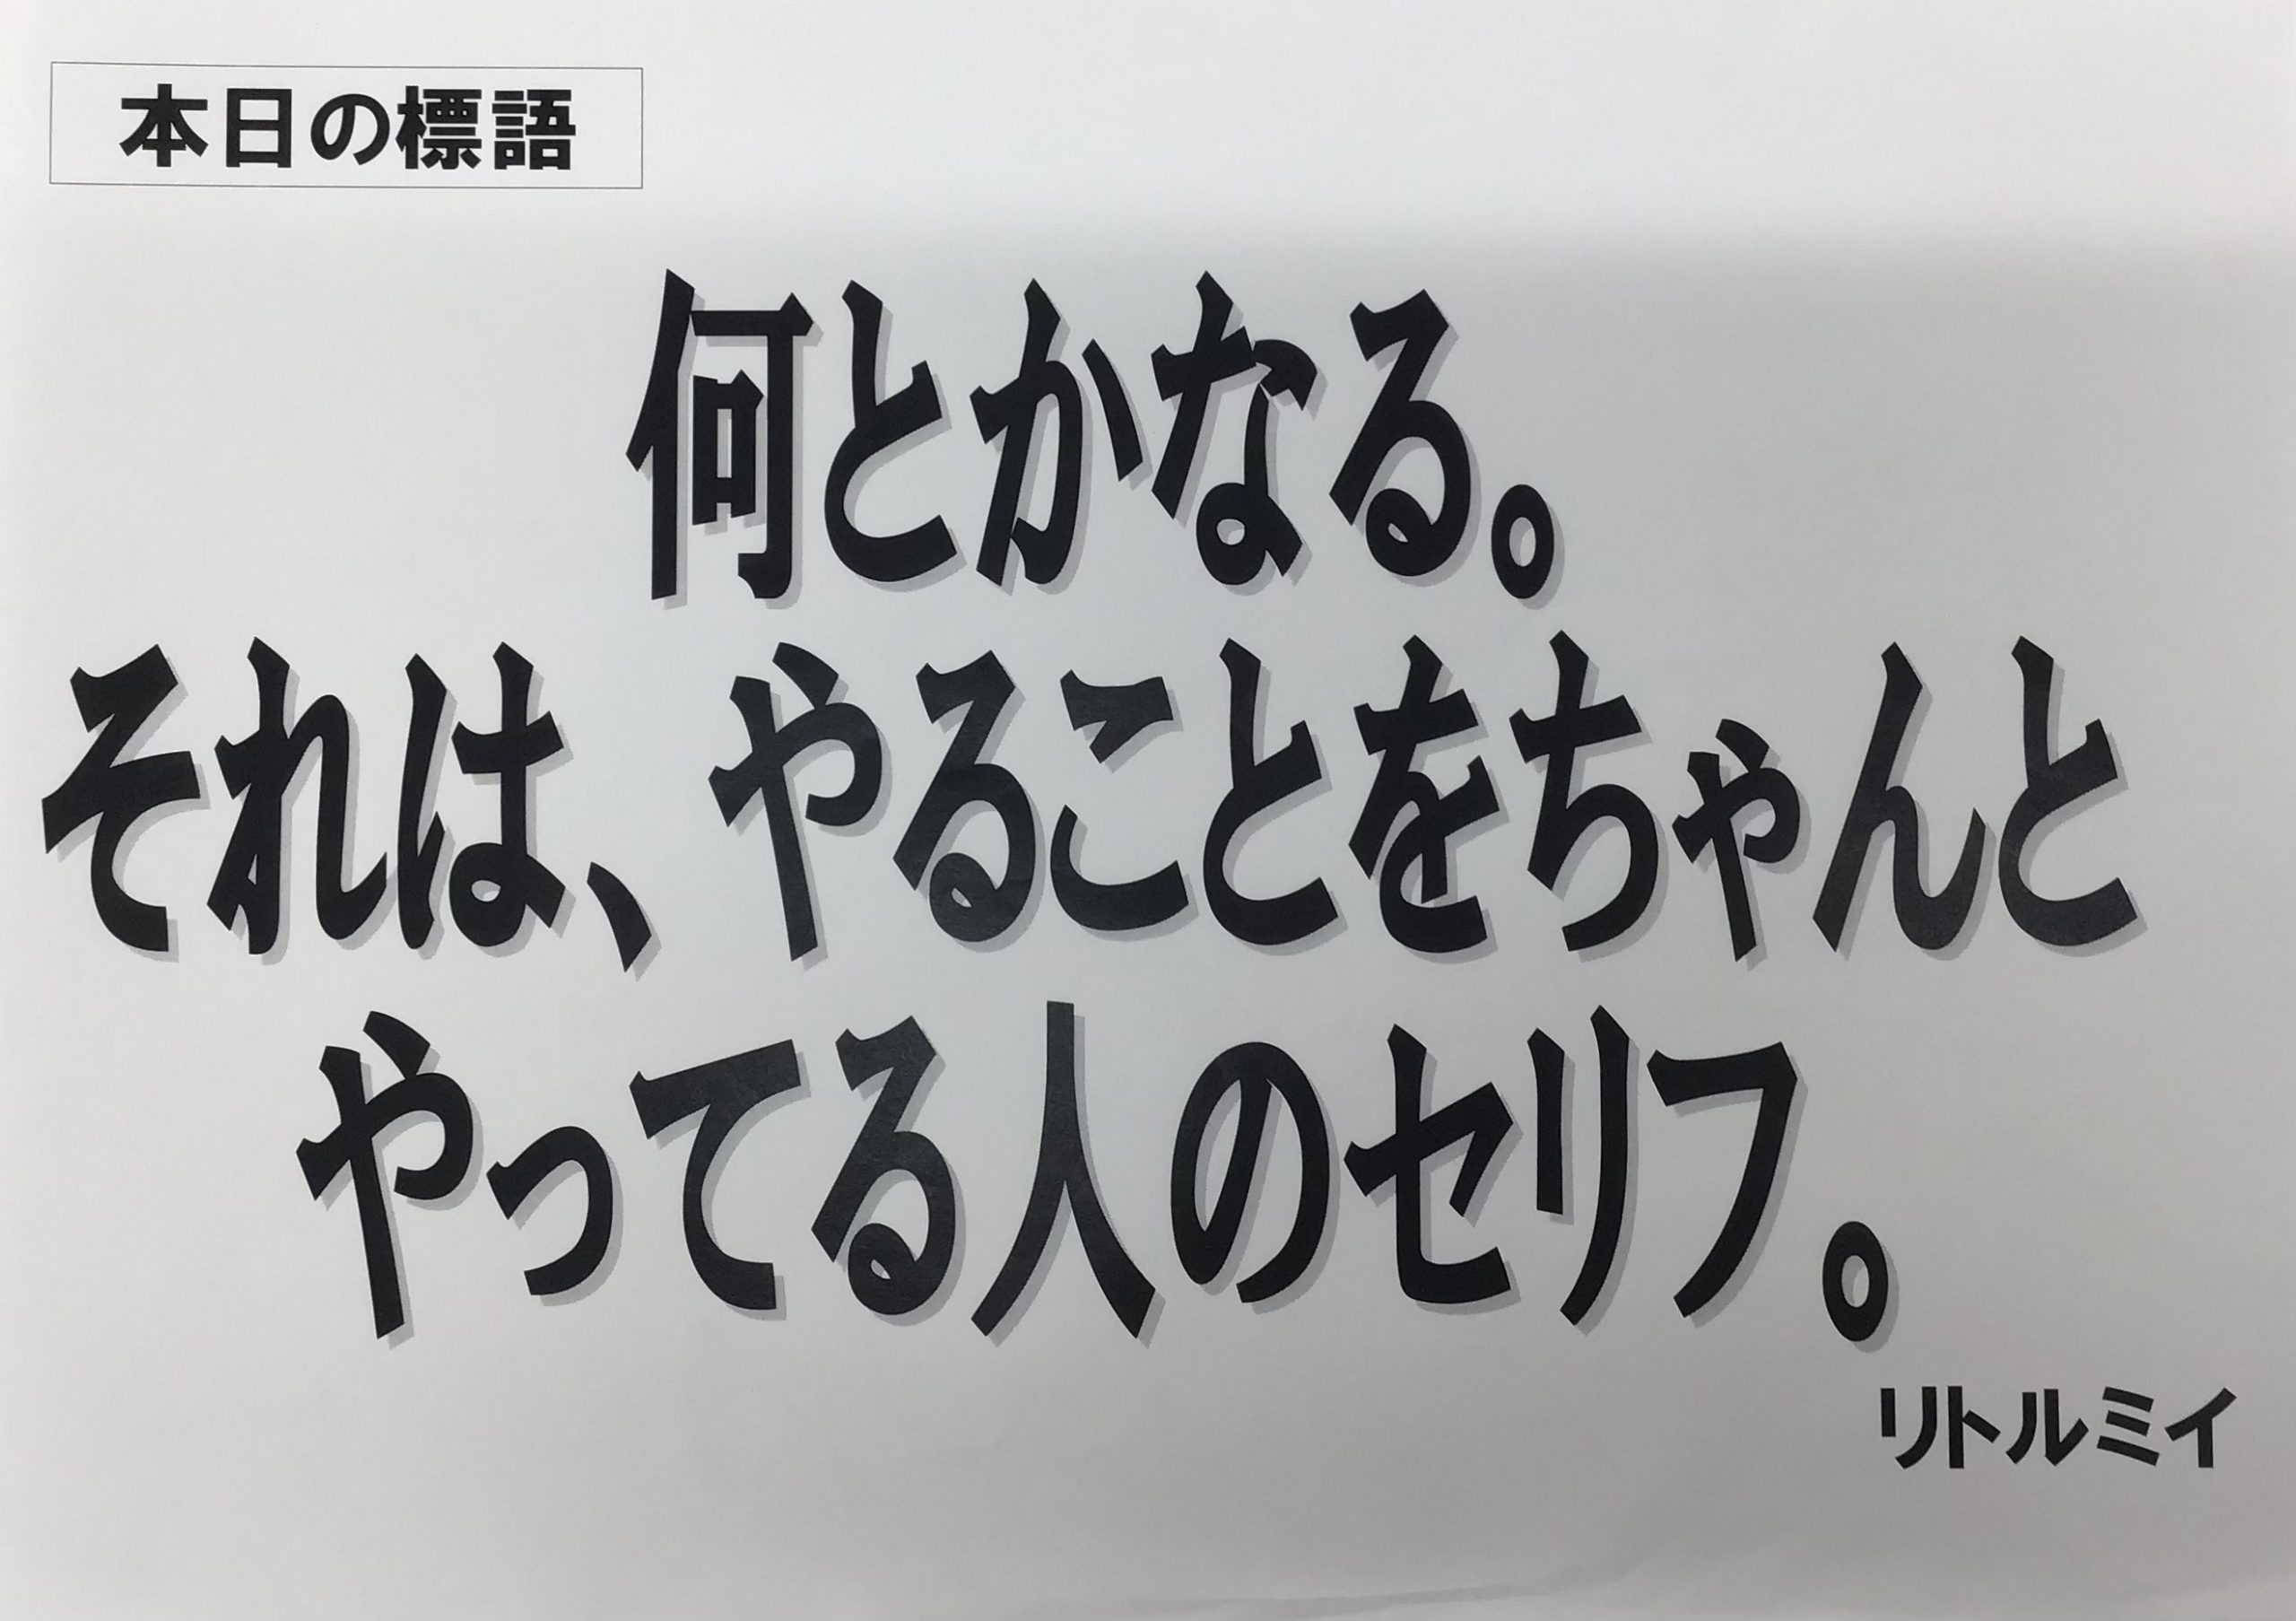 本日の標語
何とかなる。
それは、やることをちゃんと
やってる人のセリフ。
リトルミイ